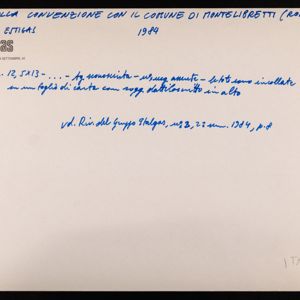 LLA CONVENZIONE CON IL COMUNE DI MONTELIBRETTI (RO
ESTIGAS 1984
as
. 12,5x13 - ... - fg. monoscritta - us. neg. assente - le foto sono incollate
su un foglio di carta con sogg. dattiloscritto in alto
vd. Riv. del Gruppo Italgas, n° 3, 23 1984, p. 8